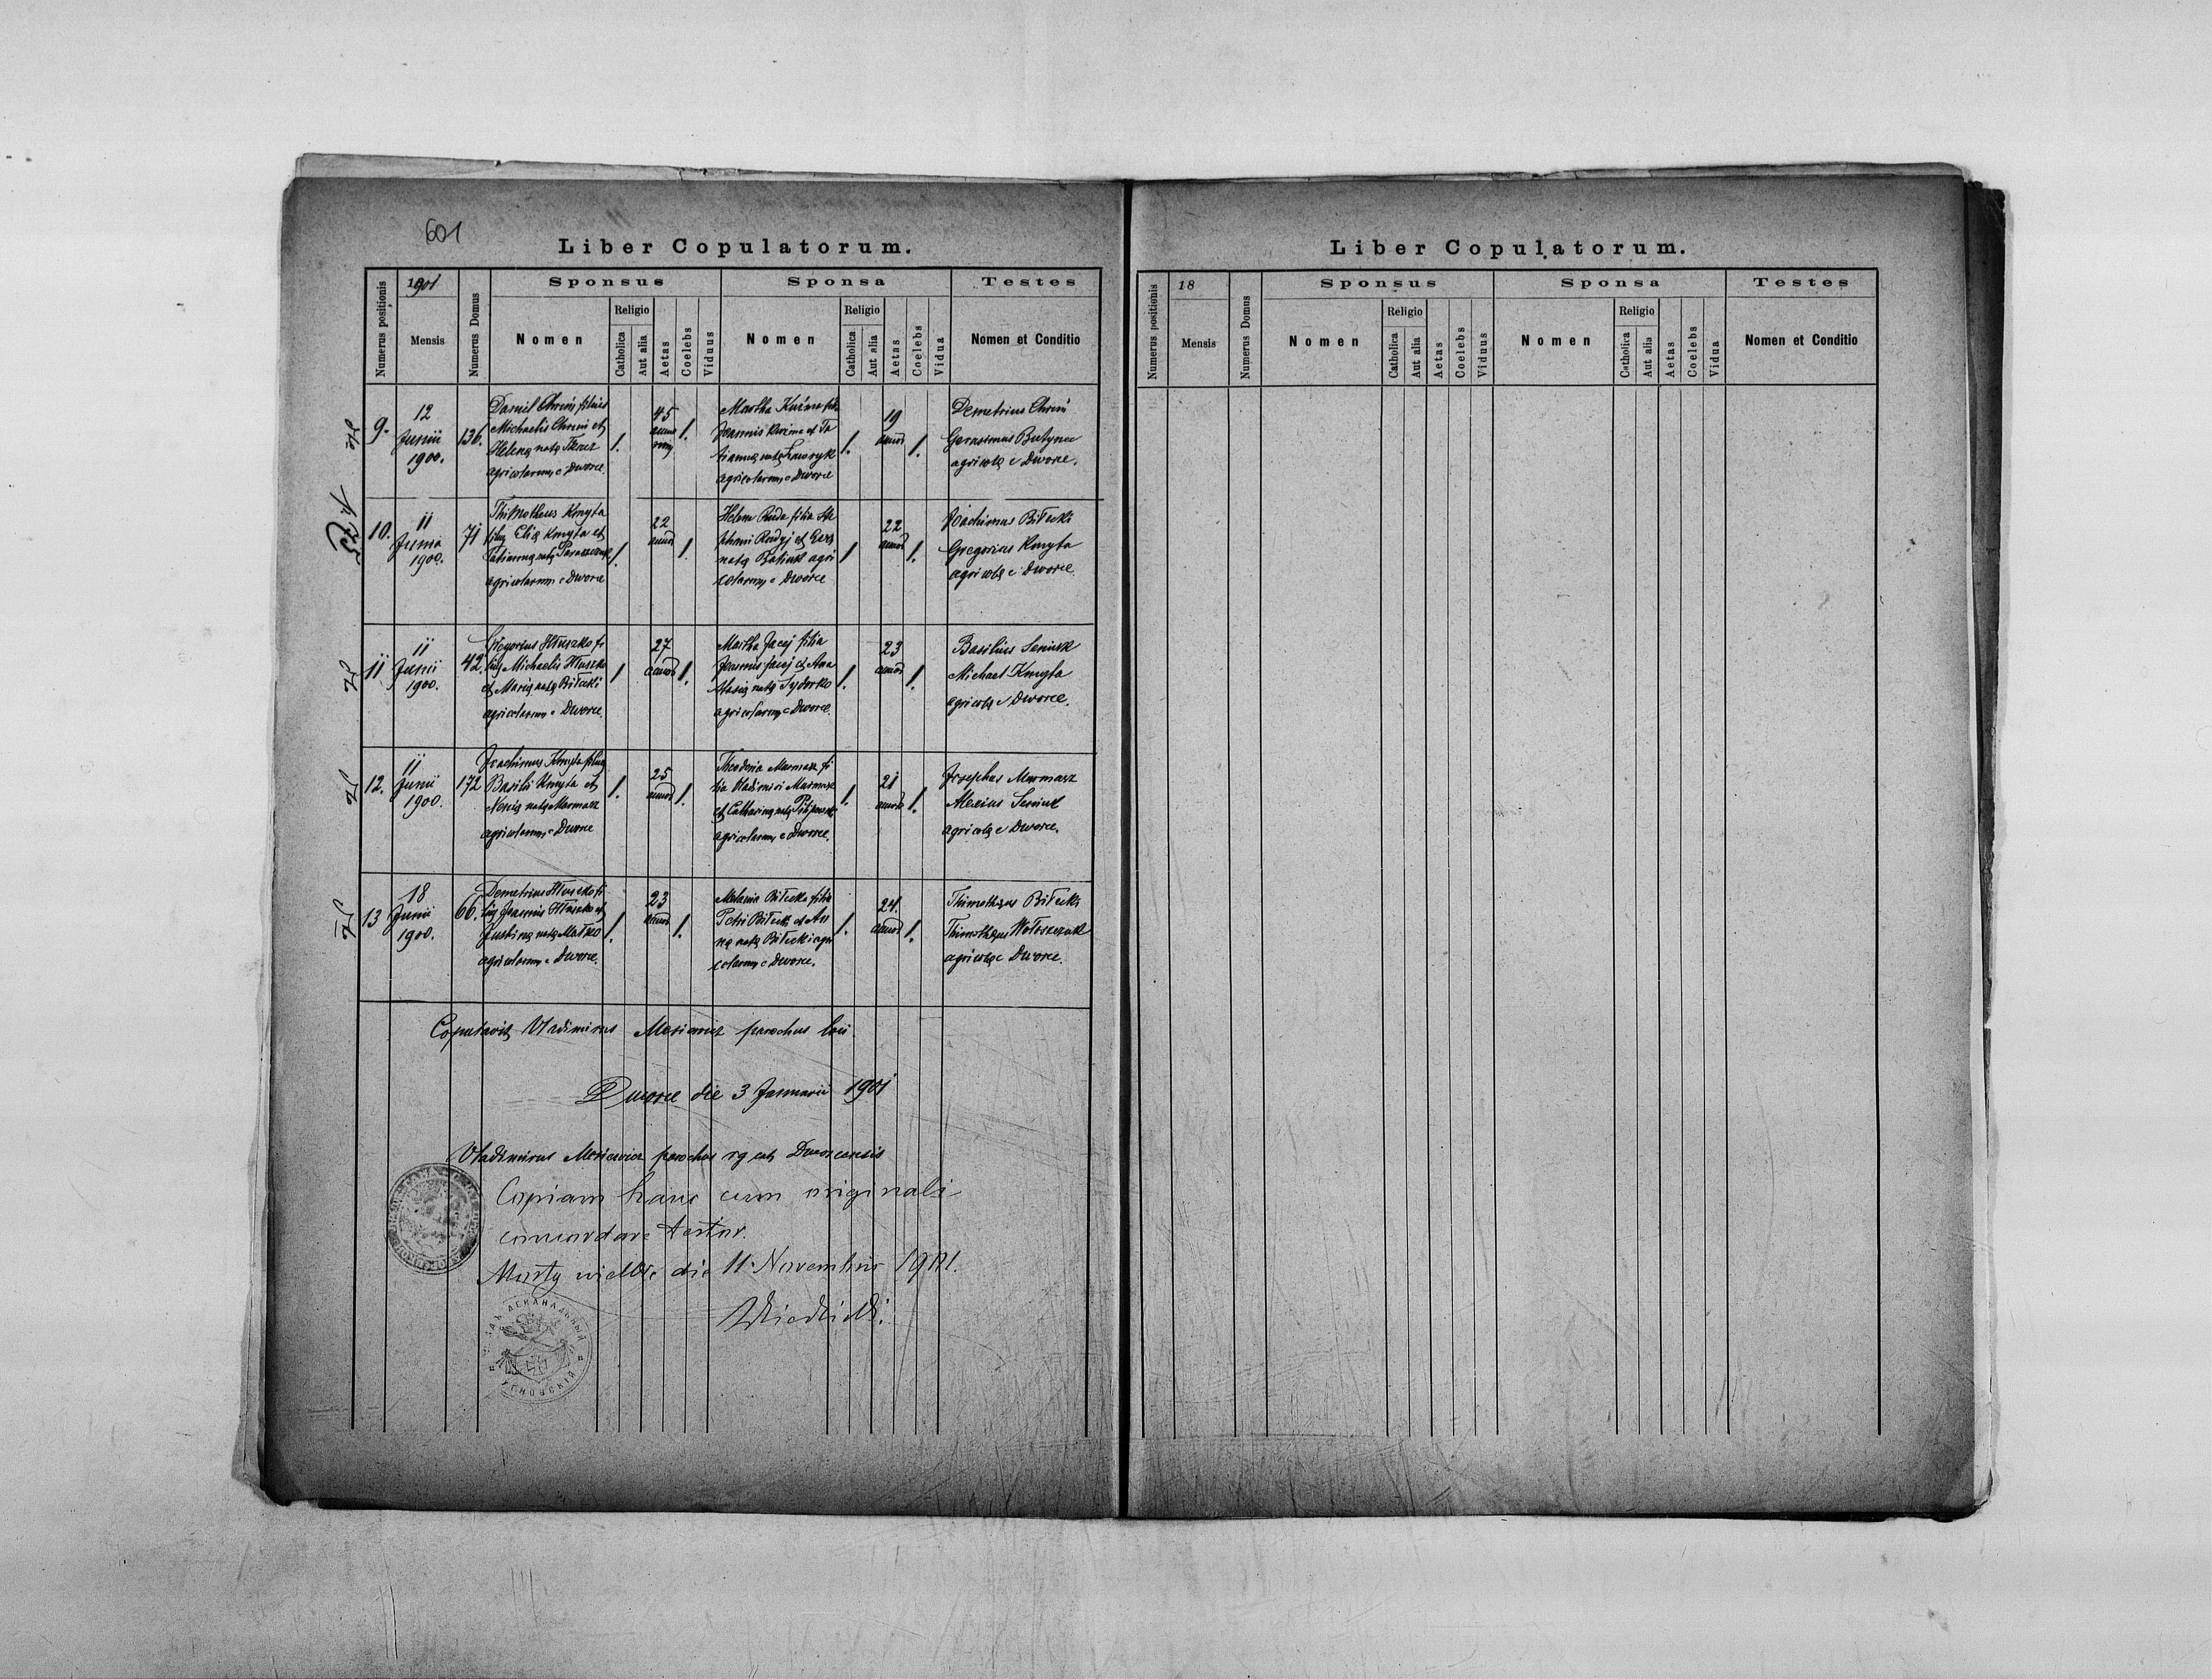 601
Liber Copulatorum.
Numerus positionis
1901
Mensis
Numerus Domus
Sponsus
Nomen
Religio
Catholica
Aut alia
Aetas
Coelebs
Viduus
Sponsa
Nomen
Religio
Catholica
Aut alia
Aetas
Coelebs
Vidua
Testes
Nomen et Conditio
9.
12
Junii
1900.
136.
Daniel Chrin filius
Michaelis Chrin et
Helenę natę Tkacz
agricolarum e Dworce.
1.
45
1.
Martha Kuźma
Joannis Kuzma et Ta
tiannę natę Ławryk
agricolarum e Dworce
1.
19
annor
1.
Demetrius Chrin
Gerasimus Butynec
agricolę e Dworce.
10.
11
Junia
1900.
71
Thimotheus Kmyta
filius Elię Kmyta et
Tatiannę natę
agricolarum e Dworce
1.
22
annor
1.
Helena Ruda filia Ste
phani Rudyj et
natę agri
colarum e Dworce
1
22
annor
1.
Joachimus Biłecki
Gregorius Kmyta
agricolę e Dworce.
11
11
Junii
1900.
42.
Gregorius Hłuszko fi
lius Michaelis Hłuszko
et Marię natę Biłecki
agricolarum e Dworce.
1
27
annor
1.
Martha Jacej filia
Joannis Jacej et Ana
stasię natę Sydorko
agricolarum e Dworce.
1.
23
annor
1.
Basilius Seniuk
Michael Kmyta
agricolę e Dworce.
12.
11
Junii
1900.
172
Joachimus Kmyta filius
Basilii Kmyta et
natę Marmasz
agricolarum e Dworce
1.
25
annor
1.
Theodosia Marmasz fi
lia Vladimiri Marmasz
et Catharinę natę
agricolarum e Dworce.
1.
21
annor
1.
Josephus Marmasz
Alexius Seniuk
agricolę e Dworce.
13
18
Junii
1900.
66.
Demetrius Hłuszko fi
lius Joannis Hłuszko et
Justinę natę Małko
agricolarum e Dworce.
1.
23
annor
1.
Melania Biłecka filia
Petri Biłecki et An
nę natę Biłecki agri
colarum e Dworce.
1.
24.
annor
1.
Thimotheus Biłecki
Thimotheus Wołoszczuk
agricolę e Dworce.
Copulavit Vladimirus parochus loci.
Dworce die 3 Januarii 1901
Vladimirus parochus rg cat Dworcensis
Copiam hanc cum originali
concordare testor.
Mosty wielkie die 11. Novembris 1901.
Liber Copulatorum.
Numerus positionis
18
Mensis
Numerus Domus
Sponsus
Nomen
Religio
Catholica
Aut alia
Aetas
Coelebs
Viduus
Sponsa
Nomen
Religio
Catholica
Aut alia
Aetas
Coelebs
Vidua
Testes
Nomen et Conditio